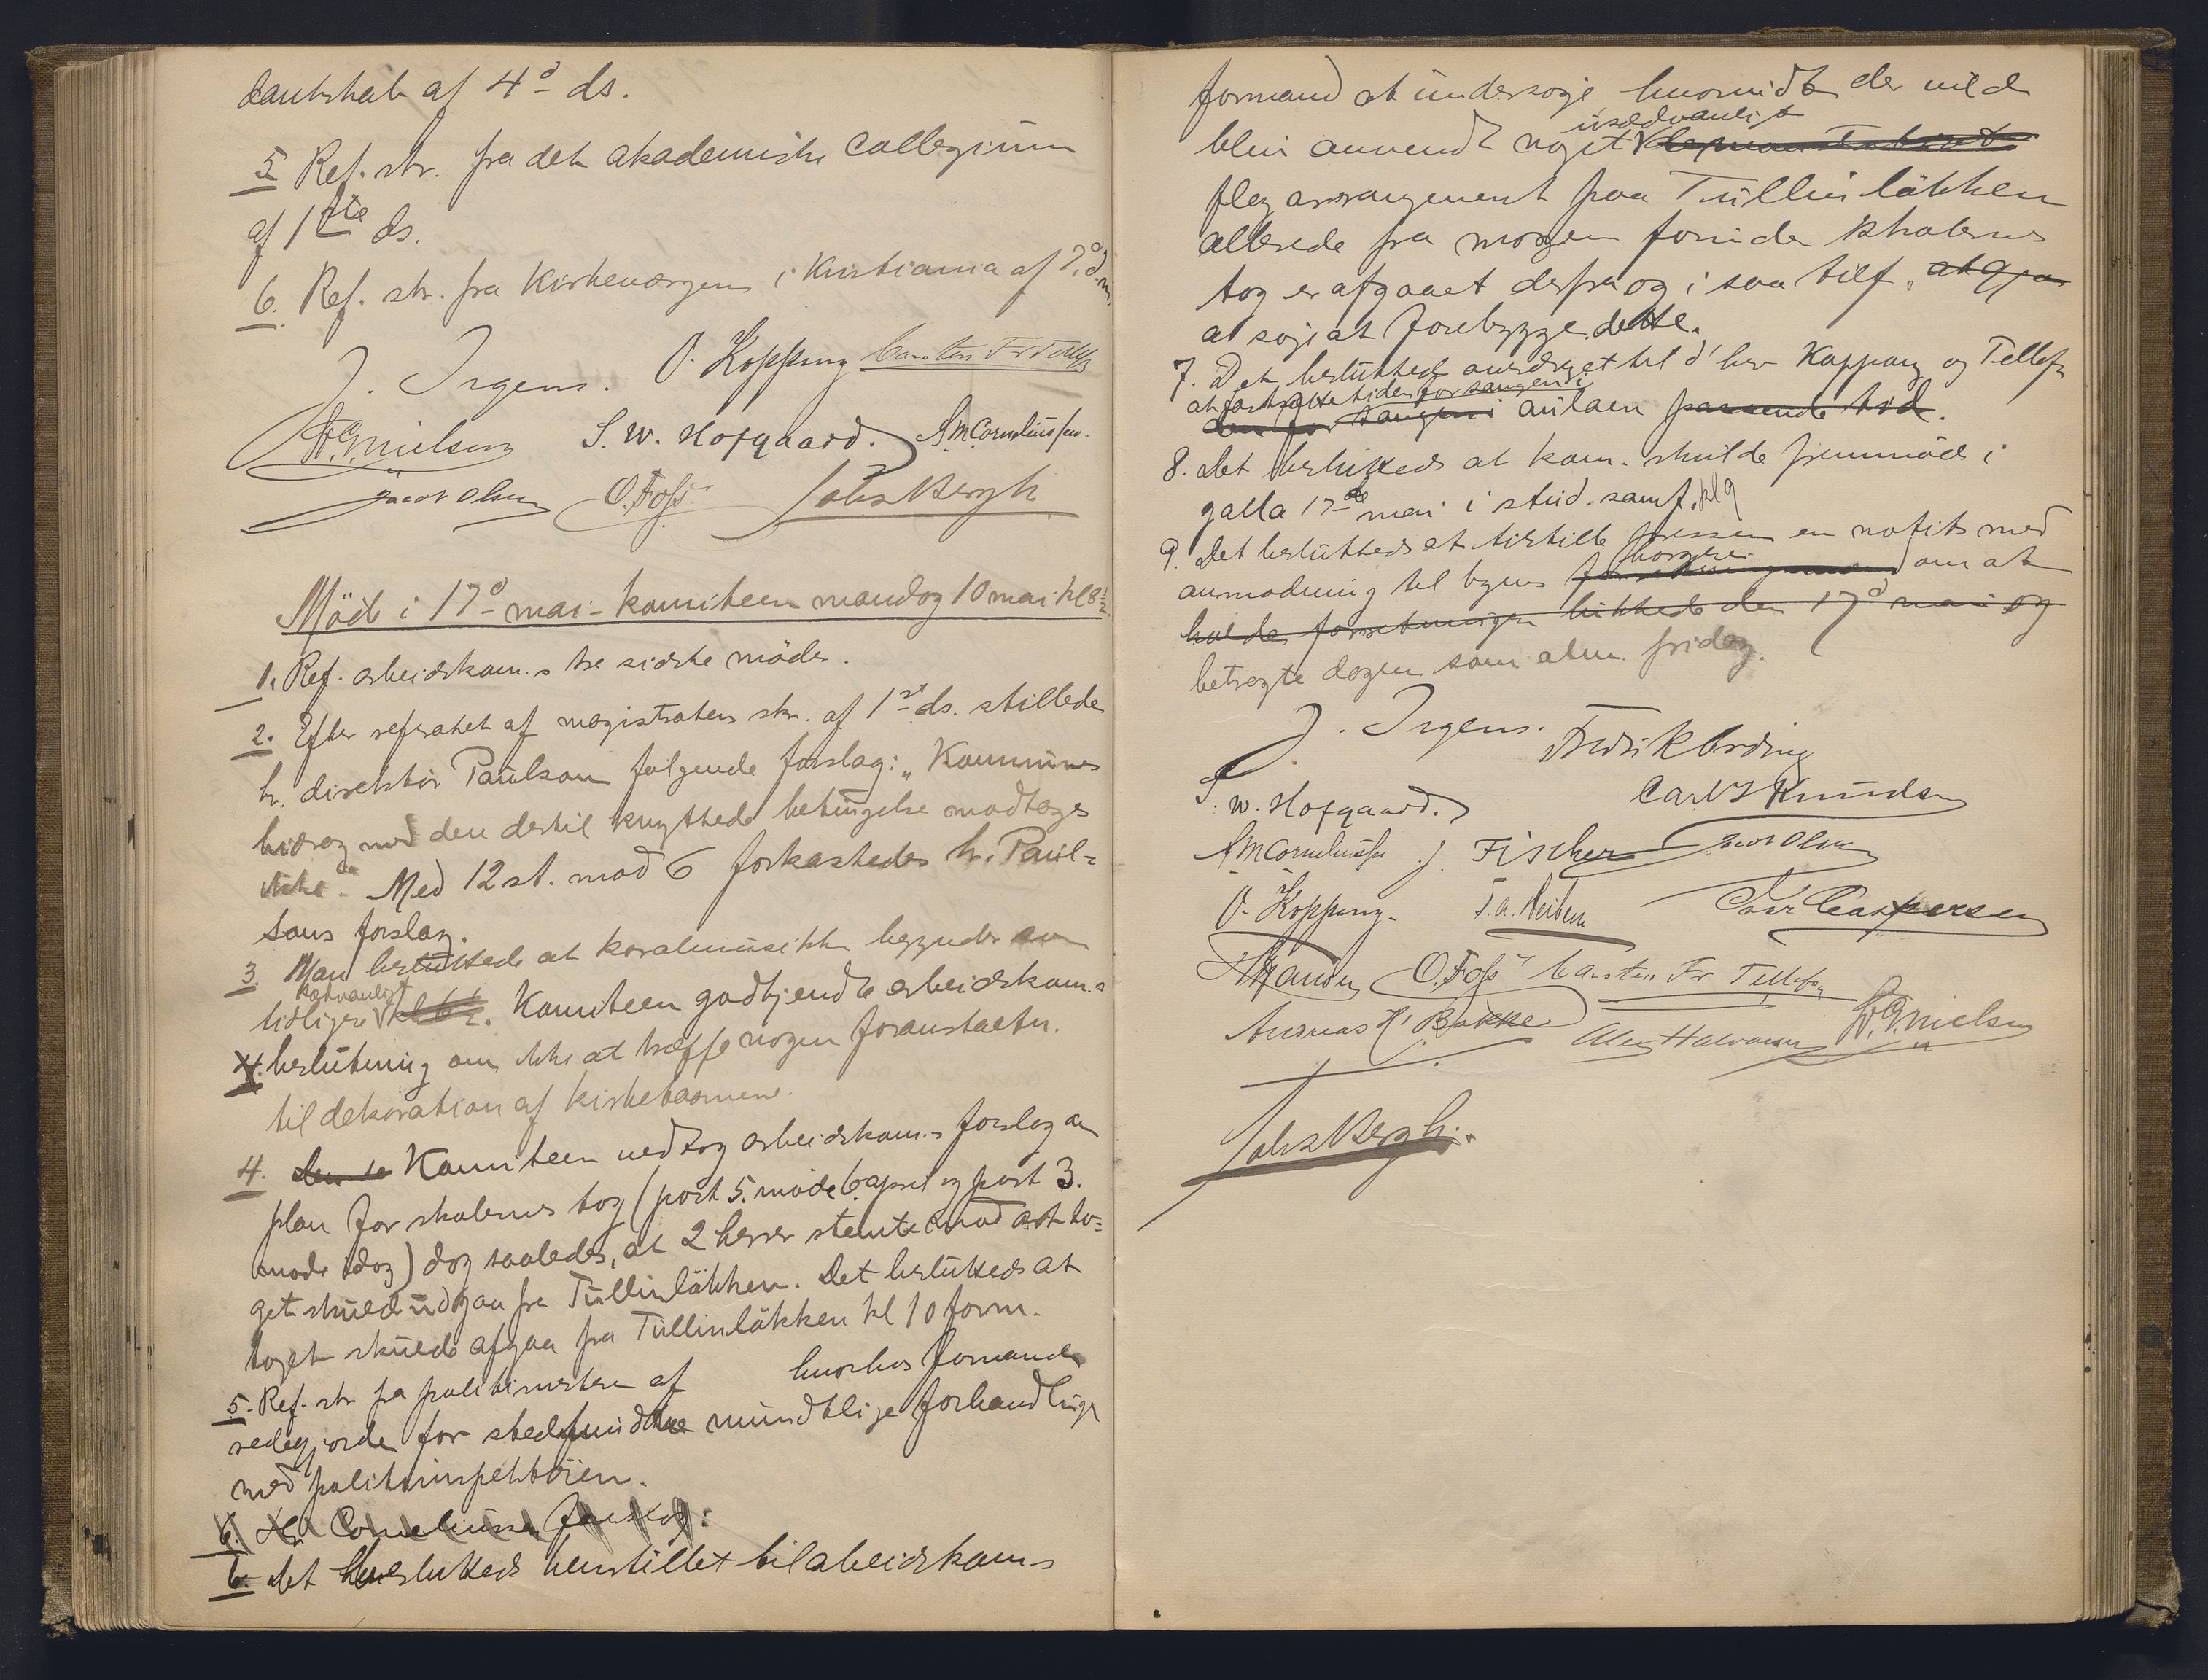 dantskab af 4d ds.
5. Ref. skr. fra det akademiske collegium
af 1ste ds.
6. Ref. skr. fra Kirkeværgen i Kristiania af
J. Irgens. O. Koppang Carsten Fr Tellefs
W. G. Nielsen S. W. Hofgaard. A M Corneliussen.
Jacob Olsen O. Foss Johs Bergh
Möde i 17d mai-komiteen mandag 10 mai kl 8½
1. Ref. arbeidskom.s tre sidste möder.
2. Efter referatet af magistratens skr. af 1st ds. stillede
hr. direktör Paulson følgende forslag: „Kommunens
bidrag med den dertil knyttede betingelse modtages
ikke." Med 12 st. mod 6 forkastedes hr. Paul=
sons forslag.
3. Man besluttede at koralmusikken begynder som
tidligere sædvanligt kl 6½. Komiteen godkjendte arbeidskom.s
4. beslutning om ikke at træffe nogen foranstaltn.
til dekoration af kirketaarnene.
4. Komiteen vedtog arbeidskom.s forslag om
plan for skolernes tog (post 5. möde 6 april og post 3.
möde idag) dog saaledes, at 2 herrer stemte mod at to=
get skulde udgaa fra Tullinlökken. Det besluttedes at
toget skulde afgaa fra Tullinlökken kl 10 form.
5. Ref. skr fra politimesteren af hvorhos formanden
redegjorde for stedfundne mundtlige forhandlinger
med politiinspektøren.
6. Hr Corneliussen foreslog:
6. Det besluttedes henstillet til arbeidskom.s
formand at undersøge hvorvidt der vilde
usædvanligt
blive anvendt noget demonstrativt
flag arrangement paa Tullinlökken
allerede fra morgen forinden skolernes
tog er afgaaet derfra og i saa tilf. at gjøre
at søge at forebygge dette.
7. Det besluttedes overdraget til d'hrr Koppang og Tellefsen
at fastsætte tiden for sangen i
den for sangen i aulaen passende tid.
8. Det besluttedes at kom. skulde fremmøde i
galla 17de mai i stud. samf. kl 9
9. Det besluttedes at tilstille pressen en notits med
borgere
anmodning til byens om at
holde forretningen lukkede den 17d mai og
betragte dagen som alm. fridag.
J. Irgens. Fredrik Ording
S. W. Hofgaard. Carl S Knudsen
A M Corneliussen J. Fischer Jacob Olsen
O. Koppang. T. A. Heiberg Ivar Caspersen
H Hansen O. Foss Carsten Fr Tellefsen
Andreas H. Bakke Alex Halvorsen W. G. Nielsen
Johs Bergh.